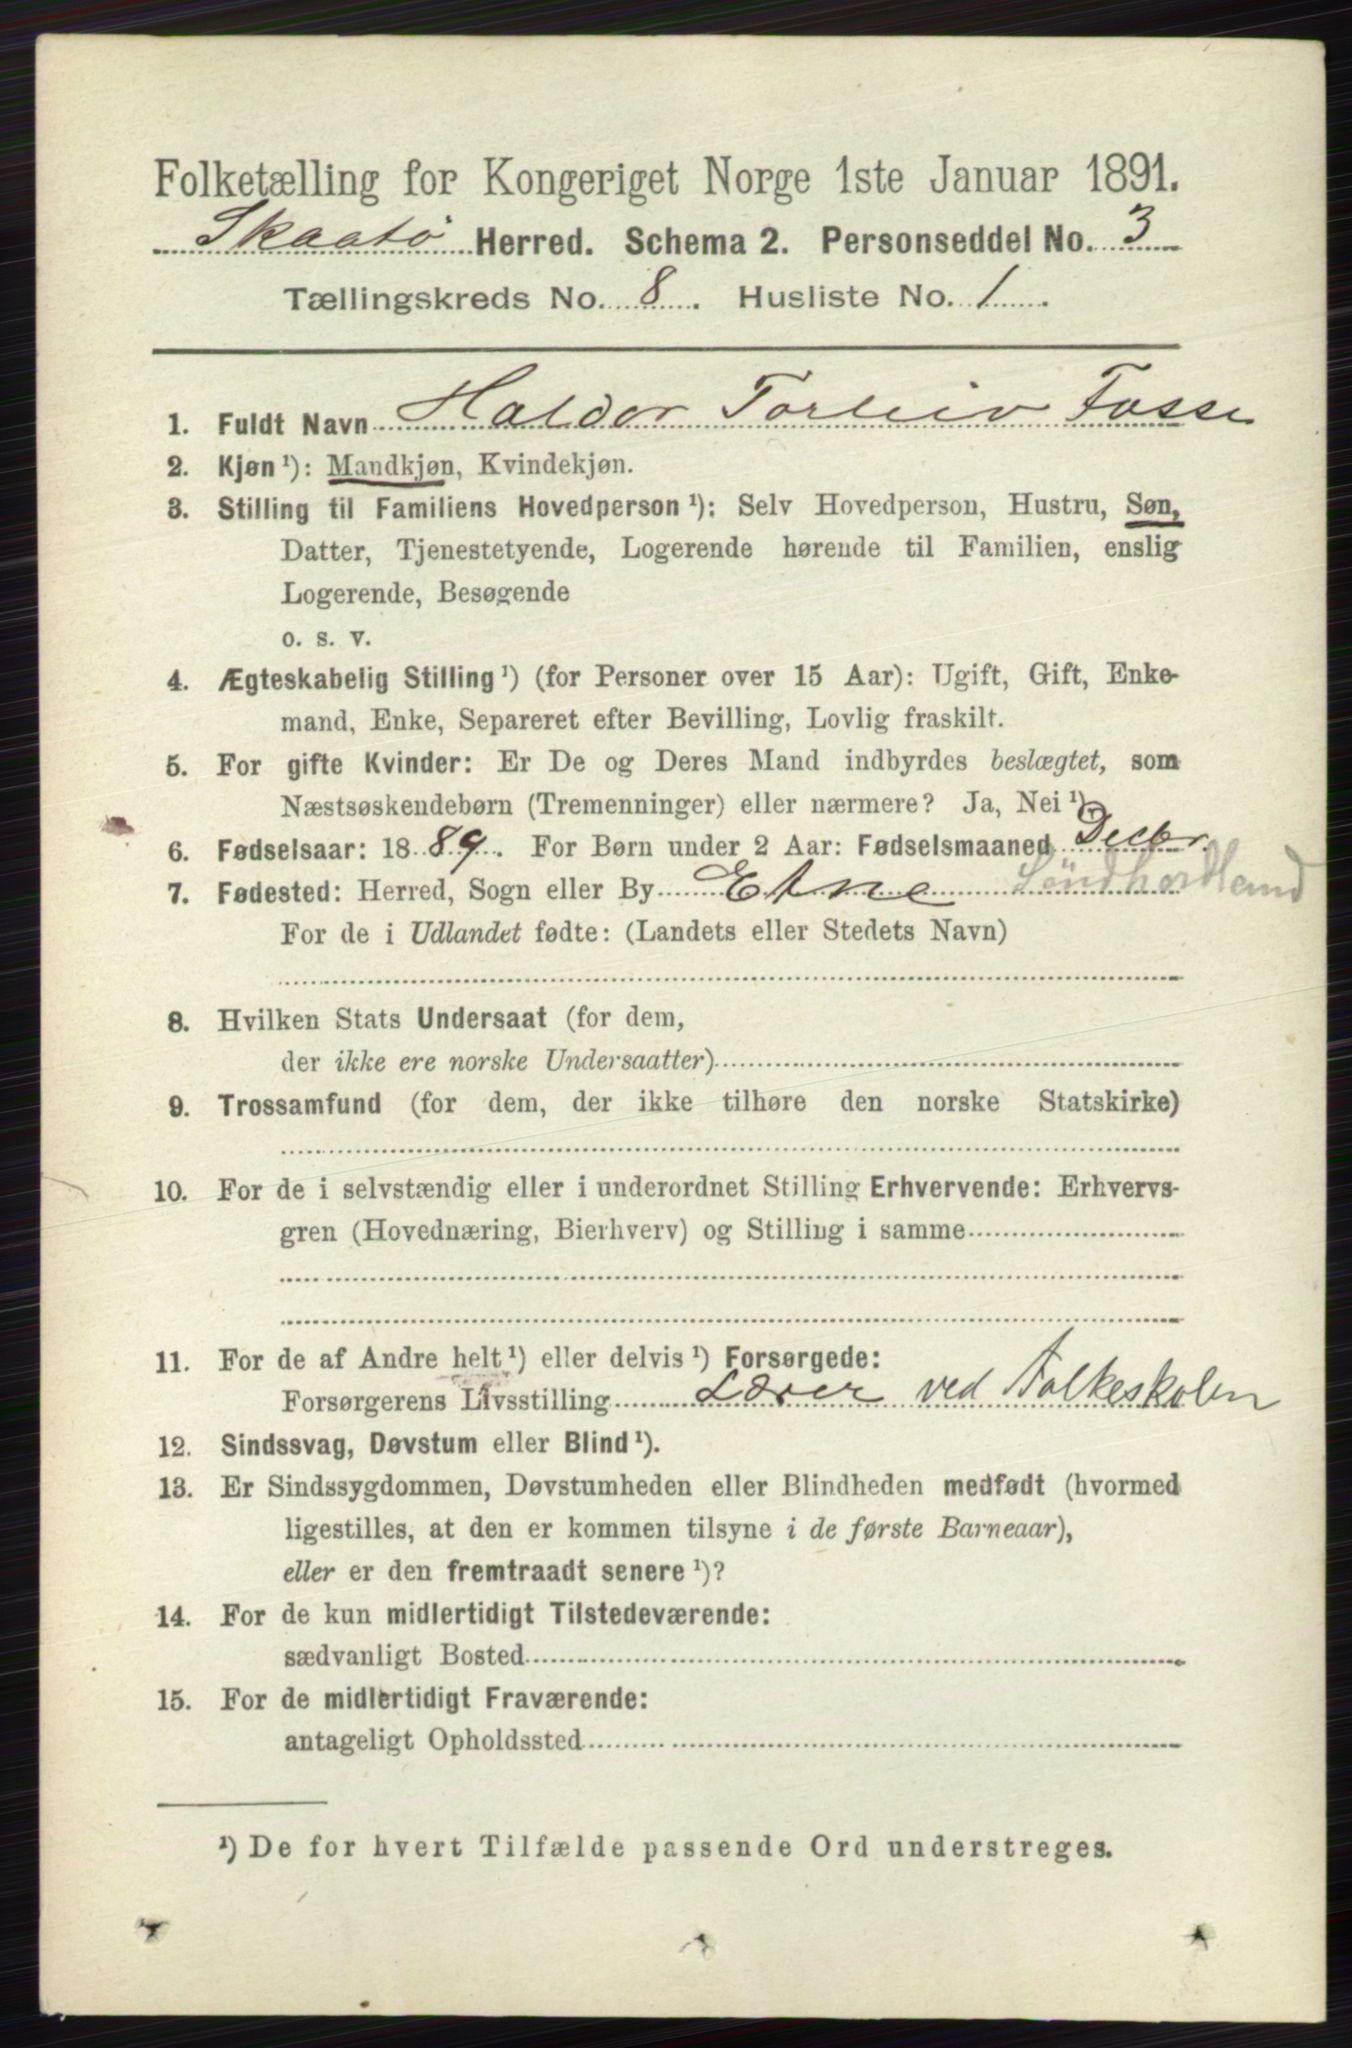 Folketælling for Kongeriget Norge 1ste Januar 1891.
Skaatø Herred. Schema 2. Personseddel No. 3
Tællingskreds No. 8. Husliste No. 1.
1. Fuldt Navn Haldor Torleiv Fosse
2. Kjøn ¹): Mandkjøn, Kvindekjøn.
3. Stilling til Familiens Hovedperson ¹): Selv Hovedperson, Hustru, Søn,
Datter, Tjenestetyende, Logerende hørende til Familien, enslig
Logerende, Besøgende
o. s. v.
4. Ægteskabelig Stilling ¹) (for Personer over 15 Aar): Ugift, Gift, Enke-
mand, Enke, Separeret efter Bevilling, Lovlig fraskilt.
5. For gifte Kvinder: Er De og Deres Mand indbyrdes beslægtet, som
Næstsøskendebørn (Tremenninger) eller nærmere? Ja, Nei ¹)
6. Fødselsaar: 1889. For Børn under 2 Aar: Fødselsmaaned Decbr.
7. Fødested: Herred, Sogn eller By Etne Söndhordland
For de i Udlandet fødte: (Landets eller Stedets Navn)
8. Hvilken Stats Undersaat (for dem,
der ikke ere norske Undersaatter)
9. Trossamfund (for dem, der ikke tilhøre den norske Statskirke)
10. For de i selvstændig eller i underordnet Stilling Erhvervende: Erhvervs-
gren (Hovednæring, Bierhverv) og Stilling i samme
11. For de af Andre helt ¹) eller delvis ¹) Forsørgede:
Forsørgerens Livsstilling Lærer ved Folkeskolen
12. Sindssvag, Døvstum eller Blind ¹).
13. Er Sindssygdommen, Døvstumheden eller Blindheden medfødt (hvormed
ligestilles, at den er kommen tilsyne i de første Barneaar),
eller er den fremtraadt senere ¹)?
14. For de kun midlertidigt Tilstedeværende:
sædvanligt Bosted
15. For de midlertidigt Fraværende:
antageligt Opholdssted
¹) De for hvert Tilfælde passende Ord understreges.